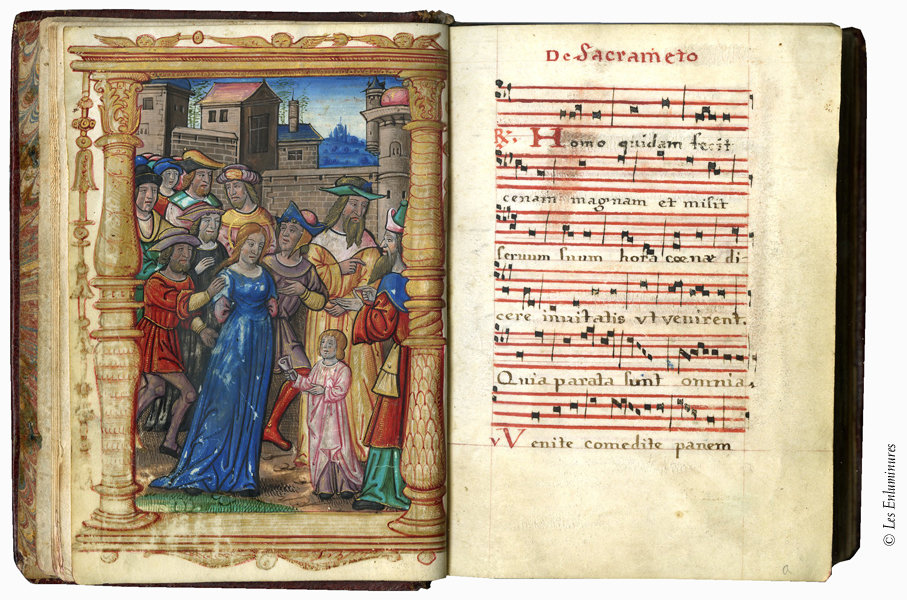 De Sacrameto
R. Homo quidam fecit
cenam magnam et misit
seruum suum hora cœnæ di-
cere inuitatis vt venirent.
Quia parata sunt omnia
V Venite comedite panem
a
© Les Enluminures